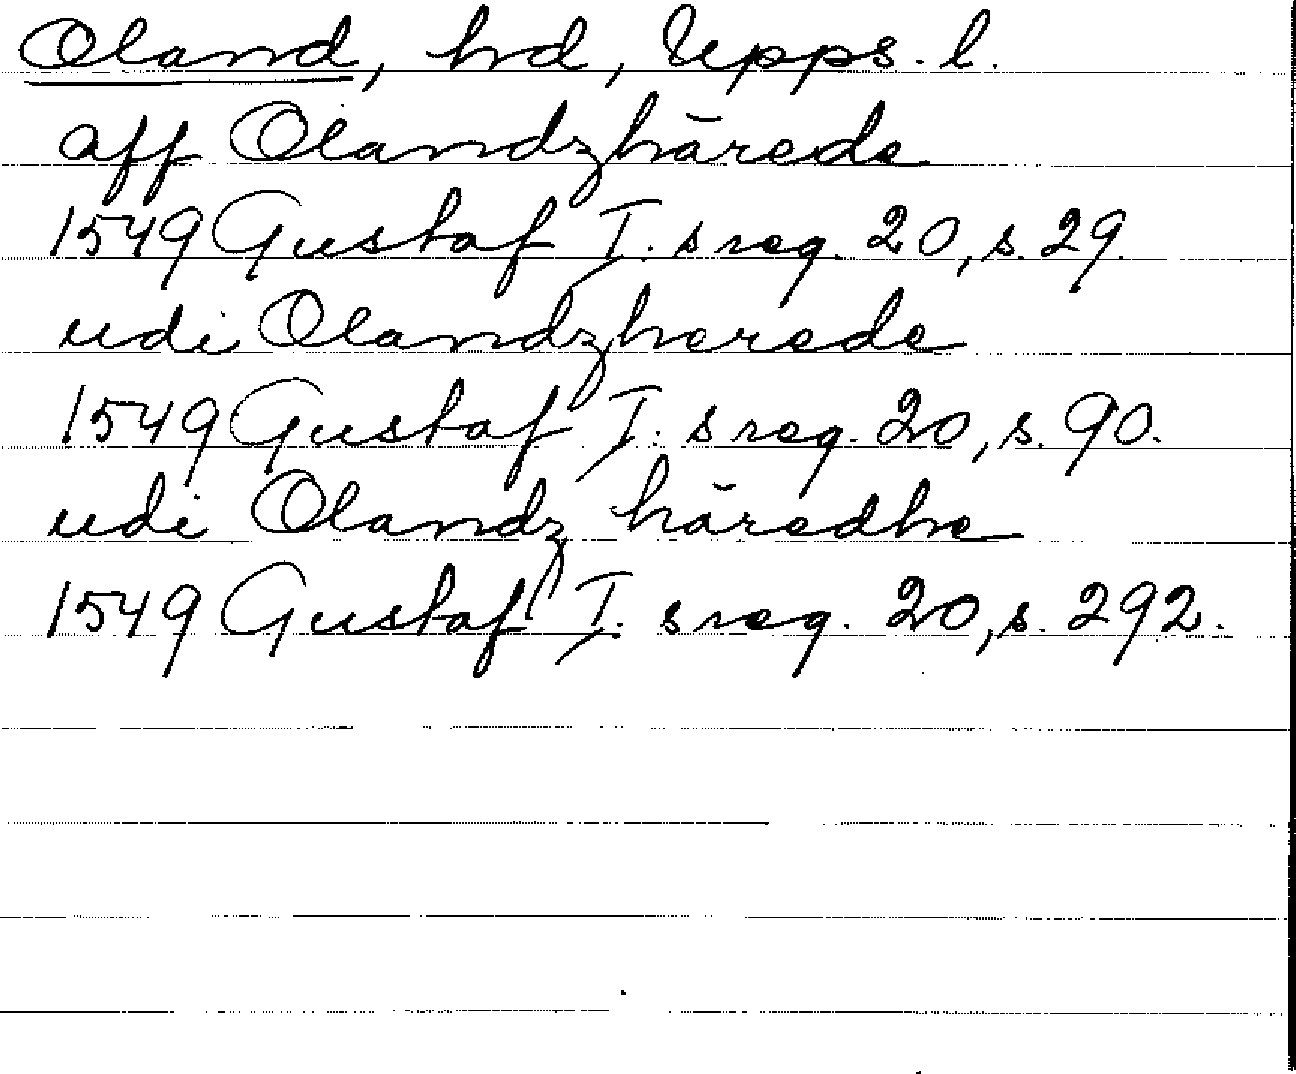 Oland, hd, Upps. l.
aff Olandzhärede
1549 Gustaf I. s reg. 20, s. 29.
udi Olandzherede
1549 Gustaf I. s reg. 20, s. 90.
udi Olandz häredhe
1549 Gustaf I. s reg. 20, s. 292.